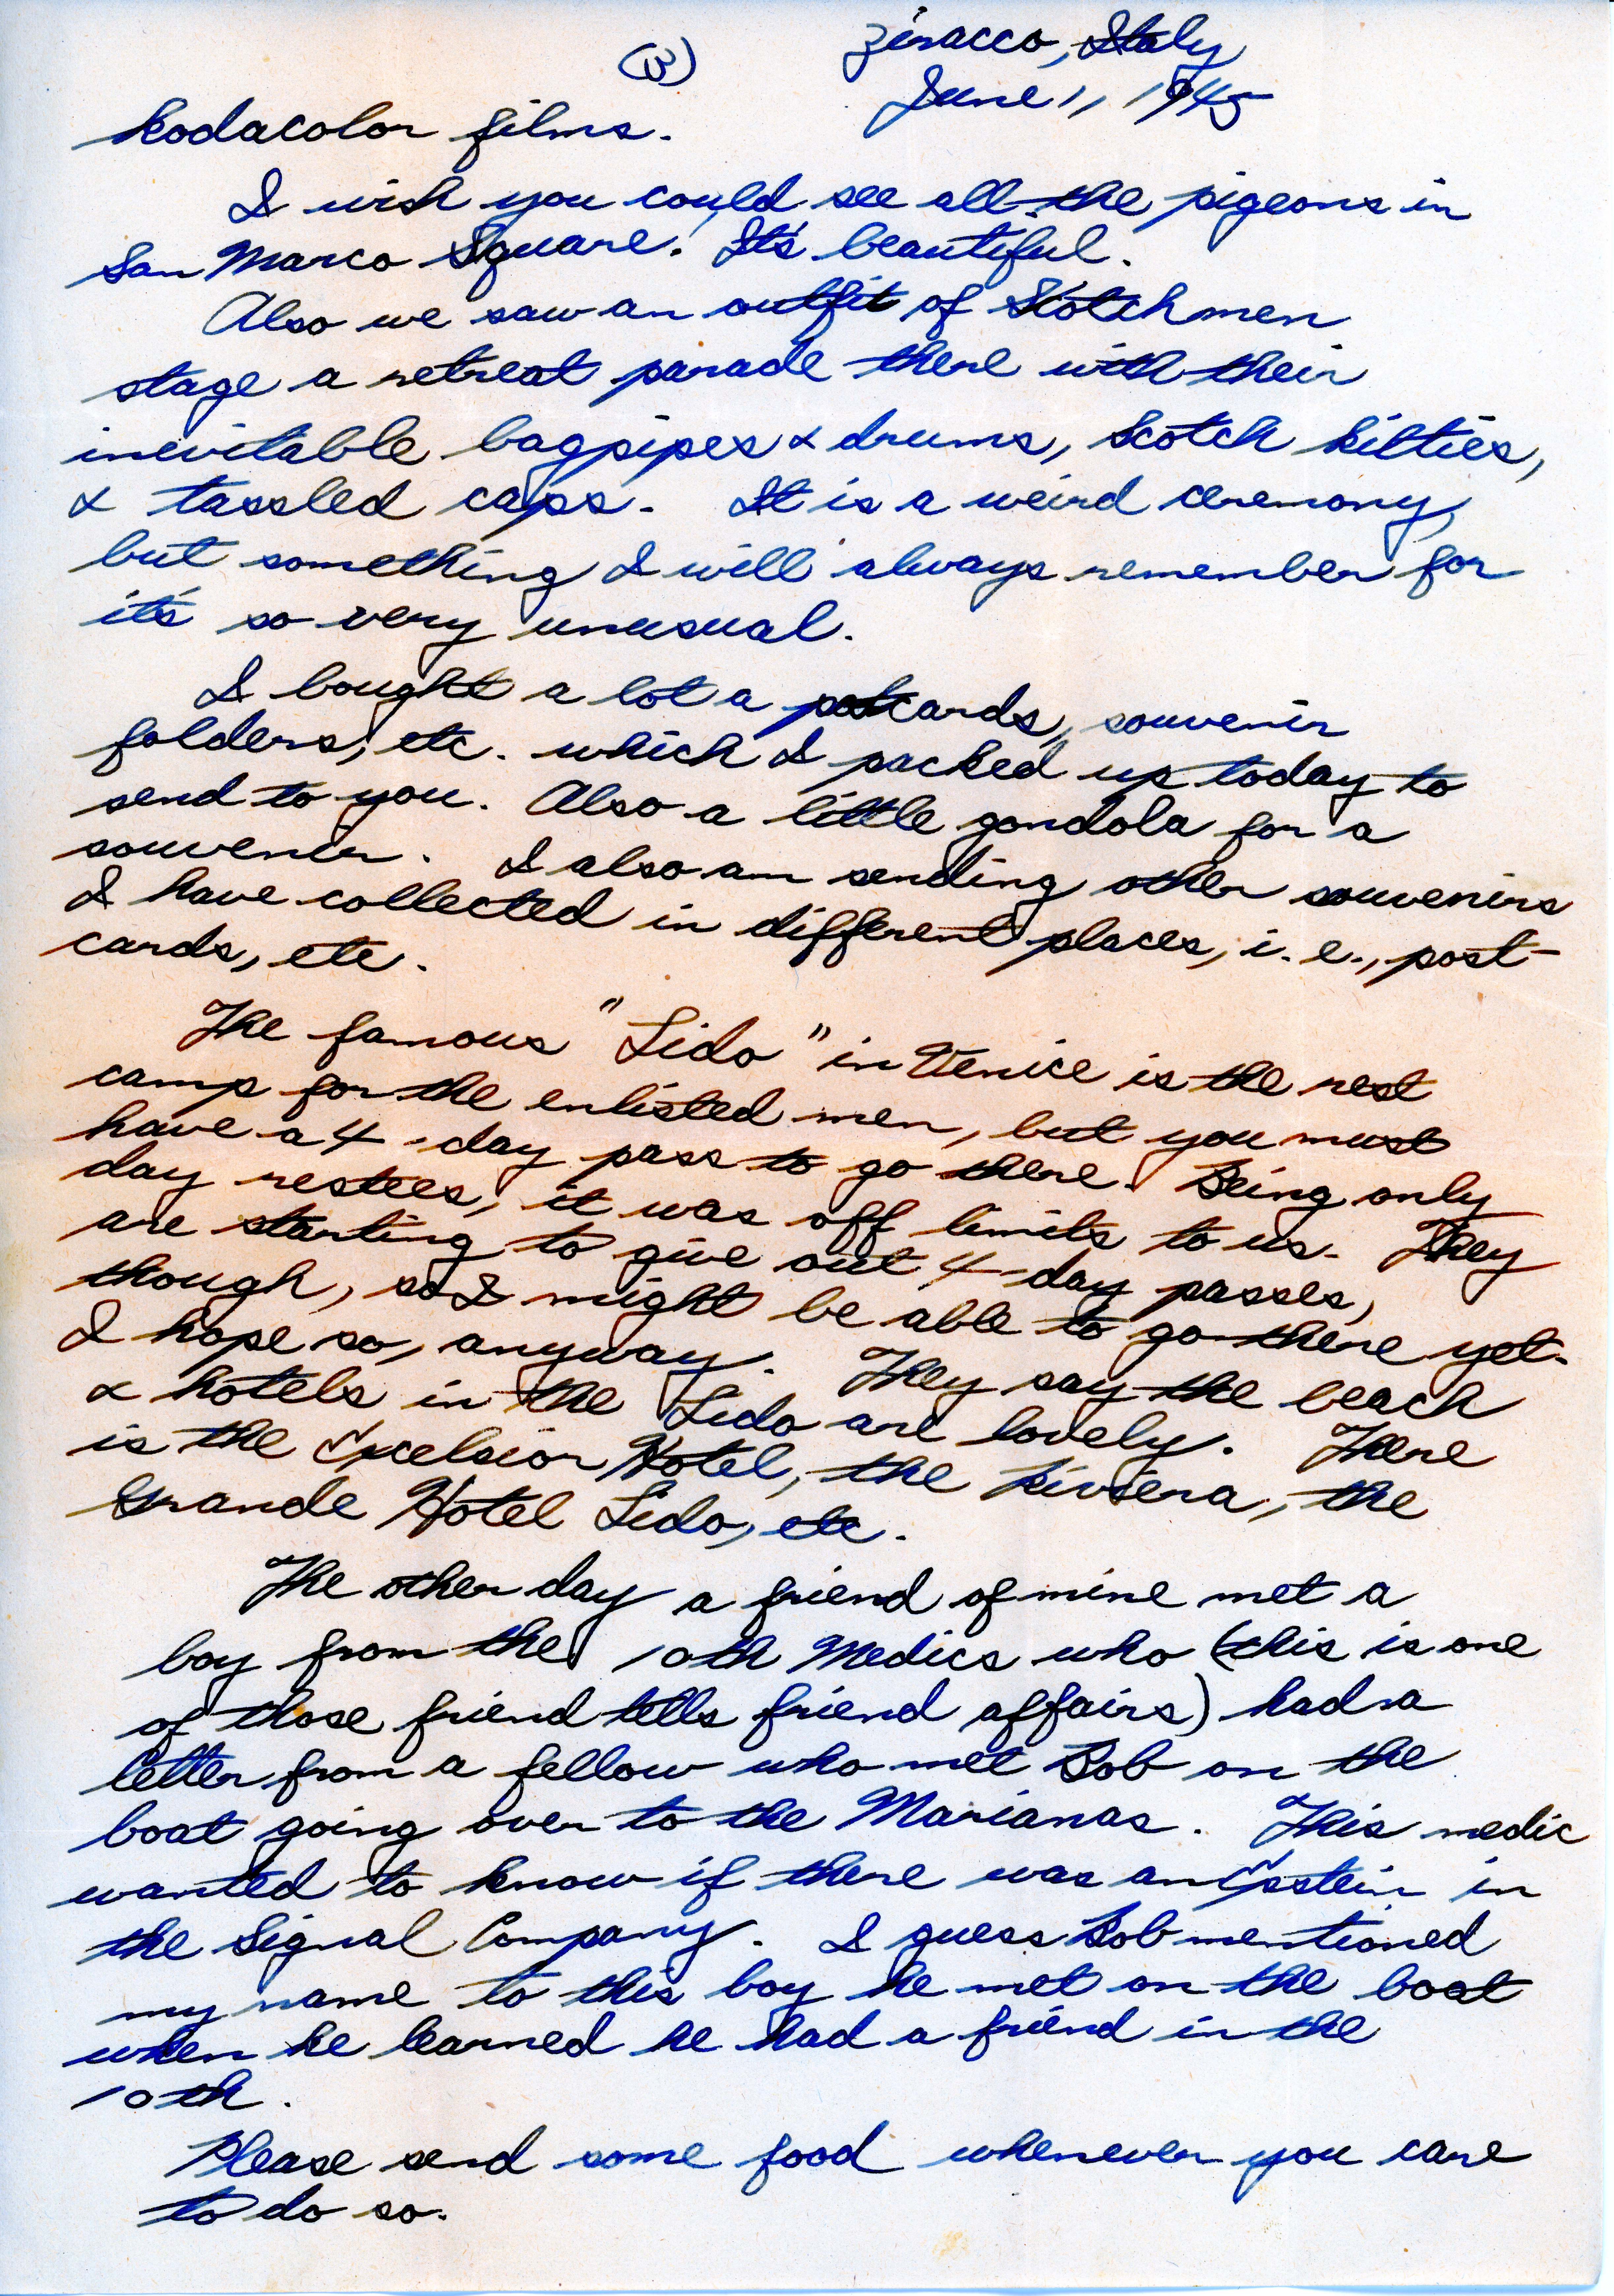 (3)
Ziracco, Italy
June 1, 1945
Kodacolor films.
I wish you could see all the pigeons in
San Marco Square. It's beautiful.
Also we saw an outfit of Scotchmen
stage a retreat parade there with their
inevitable bagpipes & drums, Scotch kilties,
& tassled caps. It is a weird ceremony,
but something I will always remember for
it's so very unusual.
I bought a lot a postcards, souvenir
folders, etc. which I packed up today to
send to you. Also a little gondola for a
souvenir. I also am sending other souvenirs
I have collected in different places, i.e., post-
cards, etc.
The famous "Lido" in Venice is the rest
camp for the enlisted men, but you must
have a 4-day pass to go there. Being only
day restees, it was off limits to us. They
are starting to give out 4-day passes,
though, so I might be able to go there yet.
I hope so, anyway. They say the beach
& hotels in the Lido are lovely. There
is the Excelsior Hotel, the Riviera, the
Grande Hotel Lido, etc.
The other day a friend of mine met a
boy from the 10th Medics who (this is one
of those friend tells friend affairs) had a
letter from a fellow who met Bob on the
boat going over to the Marianas. This medic
wanted to know if there was an Epstein in
the Signal Company. I guess Bob mentioned
my name to this boy he met on the boat
when he learned he had a friend in the
10th.
Please send some food whenever you care
to do so.